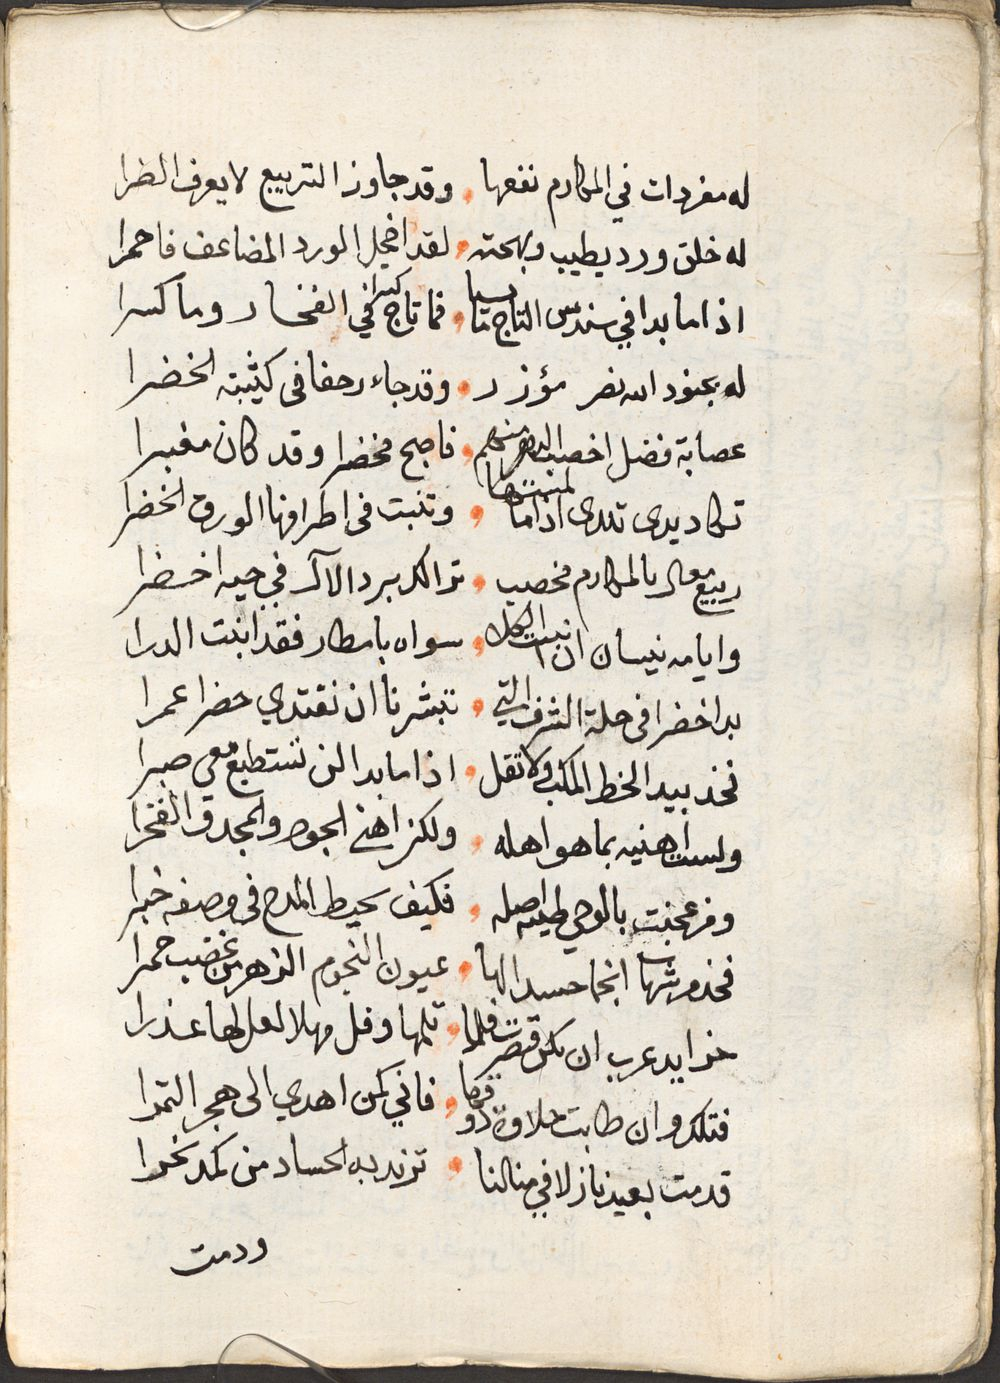 له مفردات في المكارم نفعها ، وقد جاوز التربيع لا يعرف الظرا
له خلق ورد يطيب وبهجته ، لقد اخجل الورد المضاعف فاحمرا
اذا ما بدا في سندس التاج كسرا ، فما تاج في الفخار وما كسرا
له بجنود الله نصر مؤزر ، وقد جاء زحفا في كثيبته الخضرا
عصابة فضل اخصب الدهر منهم ، فاصبح مخضرا وقد كان مغبرا
تكاد يدى تندى اذا ما لمستها ، وتنبت في اطرافها الورق الخضرا
ربيع معال بالمكارم مخصب ، تراكد برد الآل في حيه اخضرا
وايامه نيسان ان انبت الكلا ، سواه بامطار فقد انبت الدرا
بدا خضرا في حلة الشرف التي ، تبشرنا ان نقتدي خضرا عمرا
فخذ بيد الخط المكب ولا تقل ، اذا ما بدا لن تستطيع معي صبرا
ولست اهنيه بما هو اهله ، ولكن اهني الجود والمجد والفخرا
ومن عجنت بالوحي طينة اصله ، فكيف يحيط المدح في وصفه خبرا
فخذ من شهابا انجما حسدا لها ، عيون النجوم الزهر من غضب حمرا
خرايد عرب ان تكن قصرت فلما ، تلمها وقل مهلا لعل لها عذرا
فتلك وان طابت حلاوة ذوقها ، فاني كمن اهدي الى هجر التمرا
قدمت بعيد نازلا في منالنا ، تزيد به الحساد من كمد نحرا
ودمت